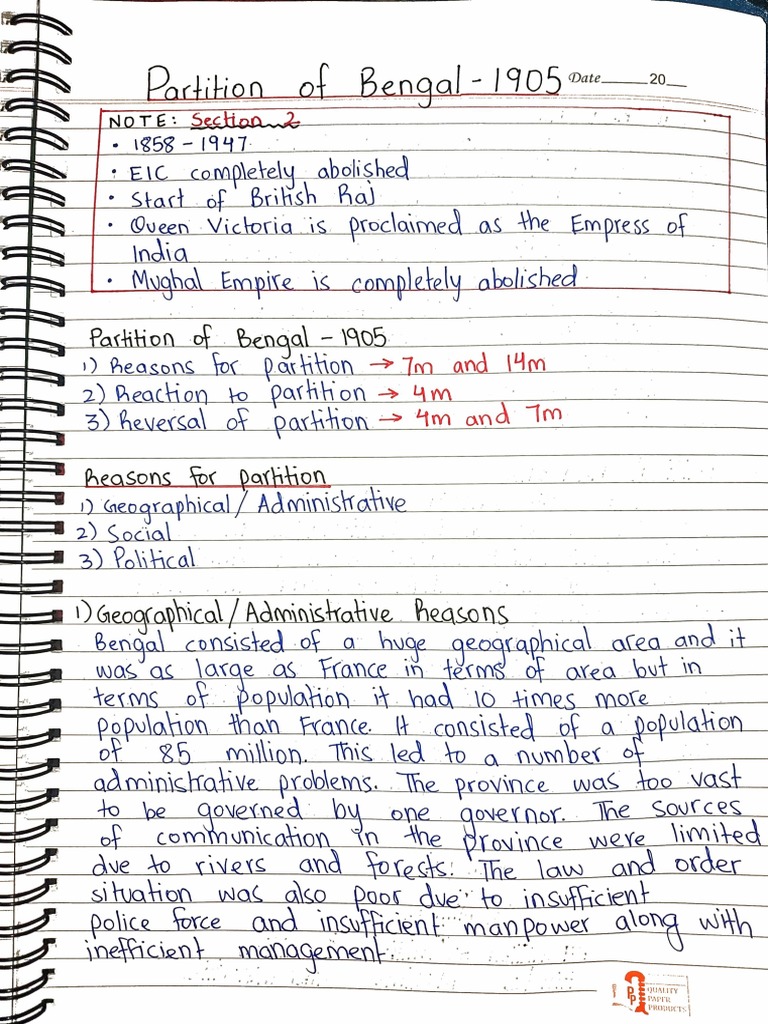 Partition of Bengal - 1905 Date______20__
NOTE: Section 2
• 1858 - 1947
• EIC completely abolished
• Start of British Raj
• Queen Victoria is proclaimed as the Empress of
India
• Mughal Empire is completely abolished
Partition of Bengal - 1905
1) Reasons for partition → 7m and 14m
2) Reaction to partition → 4m
3) Reversal of partition → 4m and 7m
Reasons for partition
1) Geographical / Administrative
2) Social
3) Political
1) Geographical / Administrative Reasons
Bengal consisted of a huge geographical area and it
was as large as France in terms of area but in
terms of population it had 10 times more
population than France. It consisted of a population
of 85 million. This led to a number of
administrative problems. The province was too vast
to be governed by one governor. The sources
of communication in the province were limited
due to rivers and forests. The law and order
situation was also poor due to insufficient
police force and insufficient manpower along with
inefficient management.
QUALITY
PAPER
PRODUCTS